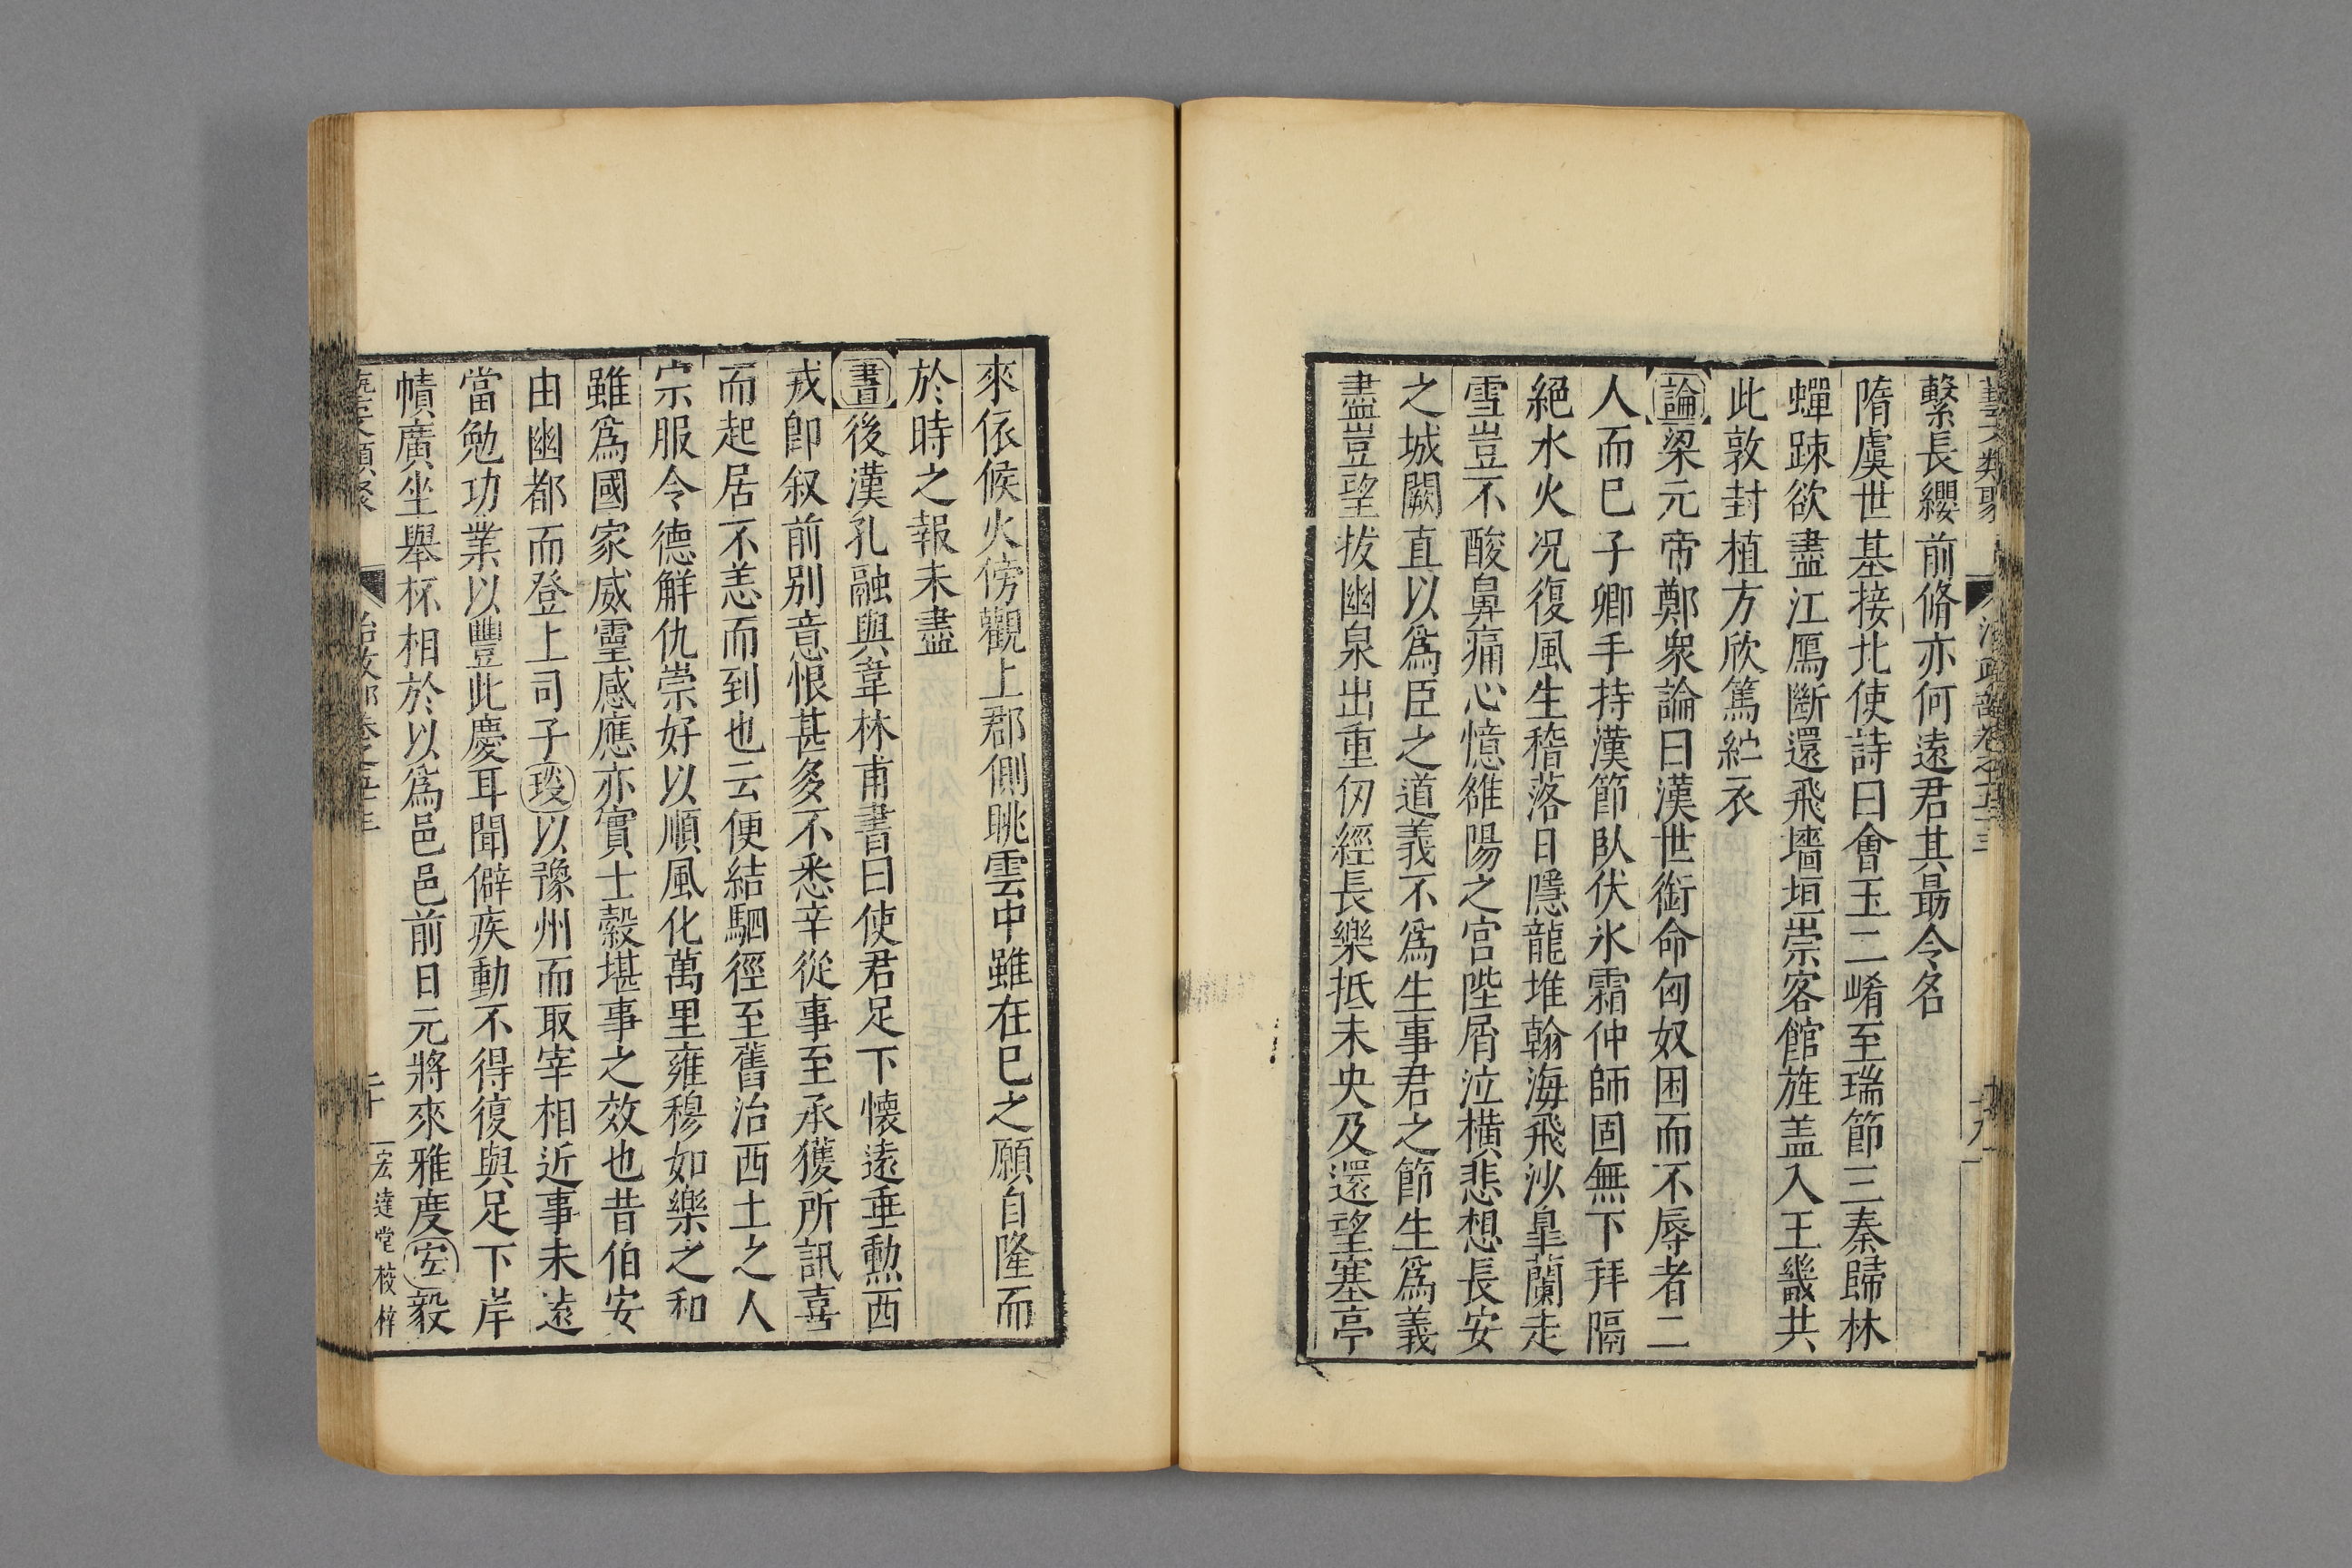 藝文類聚 治政部卷之五十三 十九
繫長纓前脩亦何遠君其最令名
隋虞世基接北使詩曰會玉二崤至瑞節三秦歸林
蟬踈欲盡江鴈斷還飛墻垣崇客館旌盖入王畿共
此敦封植方欣篤紵衣
論梁元帝鄭衆論曰漢世銜命匈奴困而不辱者二
人而已子卿手持漢節臥伏氷霜仲師固無下拜隔
絕水火况復風生稽落日隱龍堆翰海飛沙皐蘭走
雪豈不酸鼻痛心憶雒陽之宫陛屑泣橫悲想長安
之城闕直以爲臣之道義不爲生事君之節生爲義
盡豈望拔幽泉出重仞經長樂抵未央及還望塞亭
來依候火傍觀上郡側眺雲中雖在巳之願自隆而
於時之報未盡
書後漢孔融與韋林甫書曰使君足下懷遠垂勲西
戎卽叙前别意恨甚多不悉辛從事至承獲所訊喜
而起居不恙而到也云便結駟徑至舊治西土之人
宗服令德觧仇崇好以順風化萬里雍穆如樂之和
雖爲國家威靈感應亦實士穀堪事之效也昔伯安
由幽都而登上司子琰以豫州而取宰相近事未遠
當勉功業以豐此慶耳聞僻疾動不得復與足下岸
幘廣坐舉杯相於以爲邑邑前日元將來雅度宏毅
藝文類聚 治政部卷之五十三 二十 宏達堂校梓